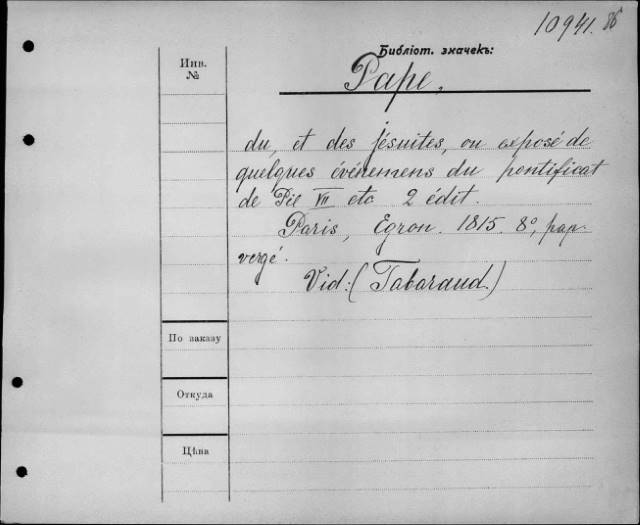 10941. 86
Библіот. значекъ:
Инв.
№
Pape,
du, et des jésuites, ou exposé de
quelques événemens du pontificat
de Pie VII etc 2 édit.
Paris, Egron. 1815. 8°, pap.
vergé.
Vid: (Tabaraud.)
По заказу
Откуда
Цѣна